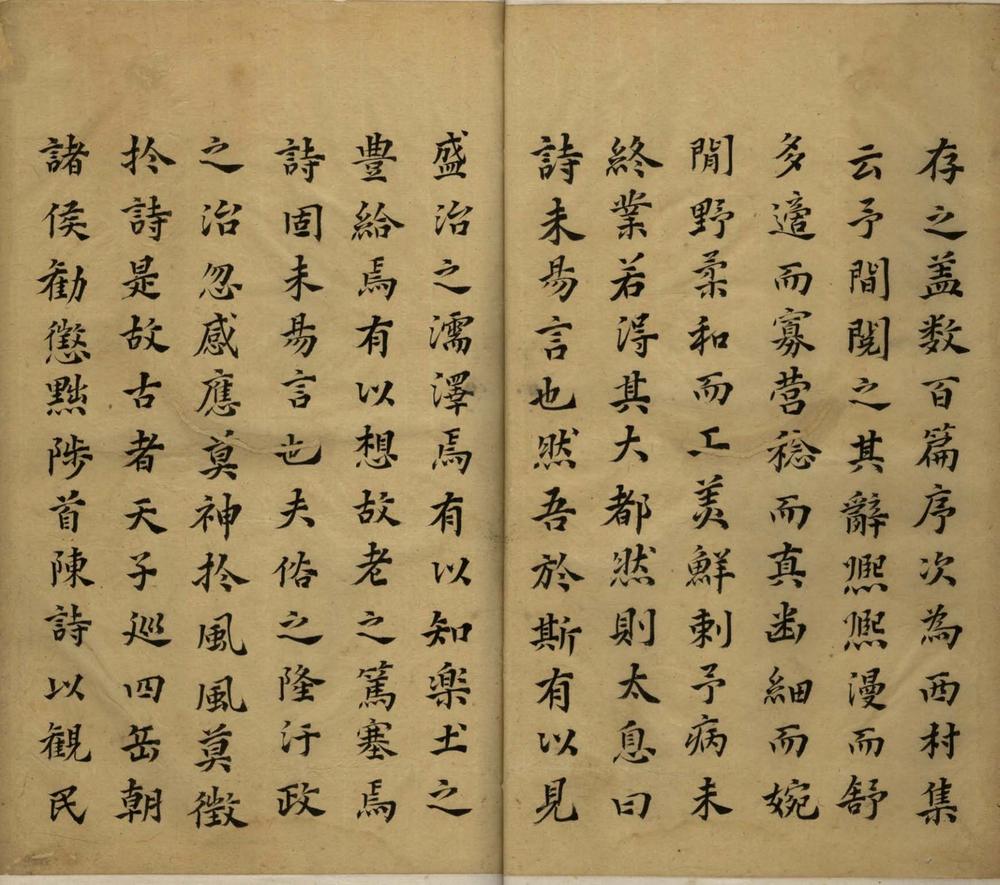 存之盖数百篇序次為西村集
云予間閱之其辭熈熈漫而舒
多適而寡营稔而真幽細而婉
閒野柔和而工美鮮刺予病未
終業若得其大都然則太息曰
詩未易言也然吾於斯有以見
盛治之濡澤焉有以知楽土之
豊給焉有以想故老之篤塞焉
詩固未易言也夫俗之隆汙政
之治忽感應莫神扵風風莫徴
扵詩是故古者天子廵四岳朝
諸侯勧懲黜陟首陳詩以観民